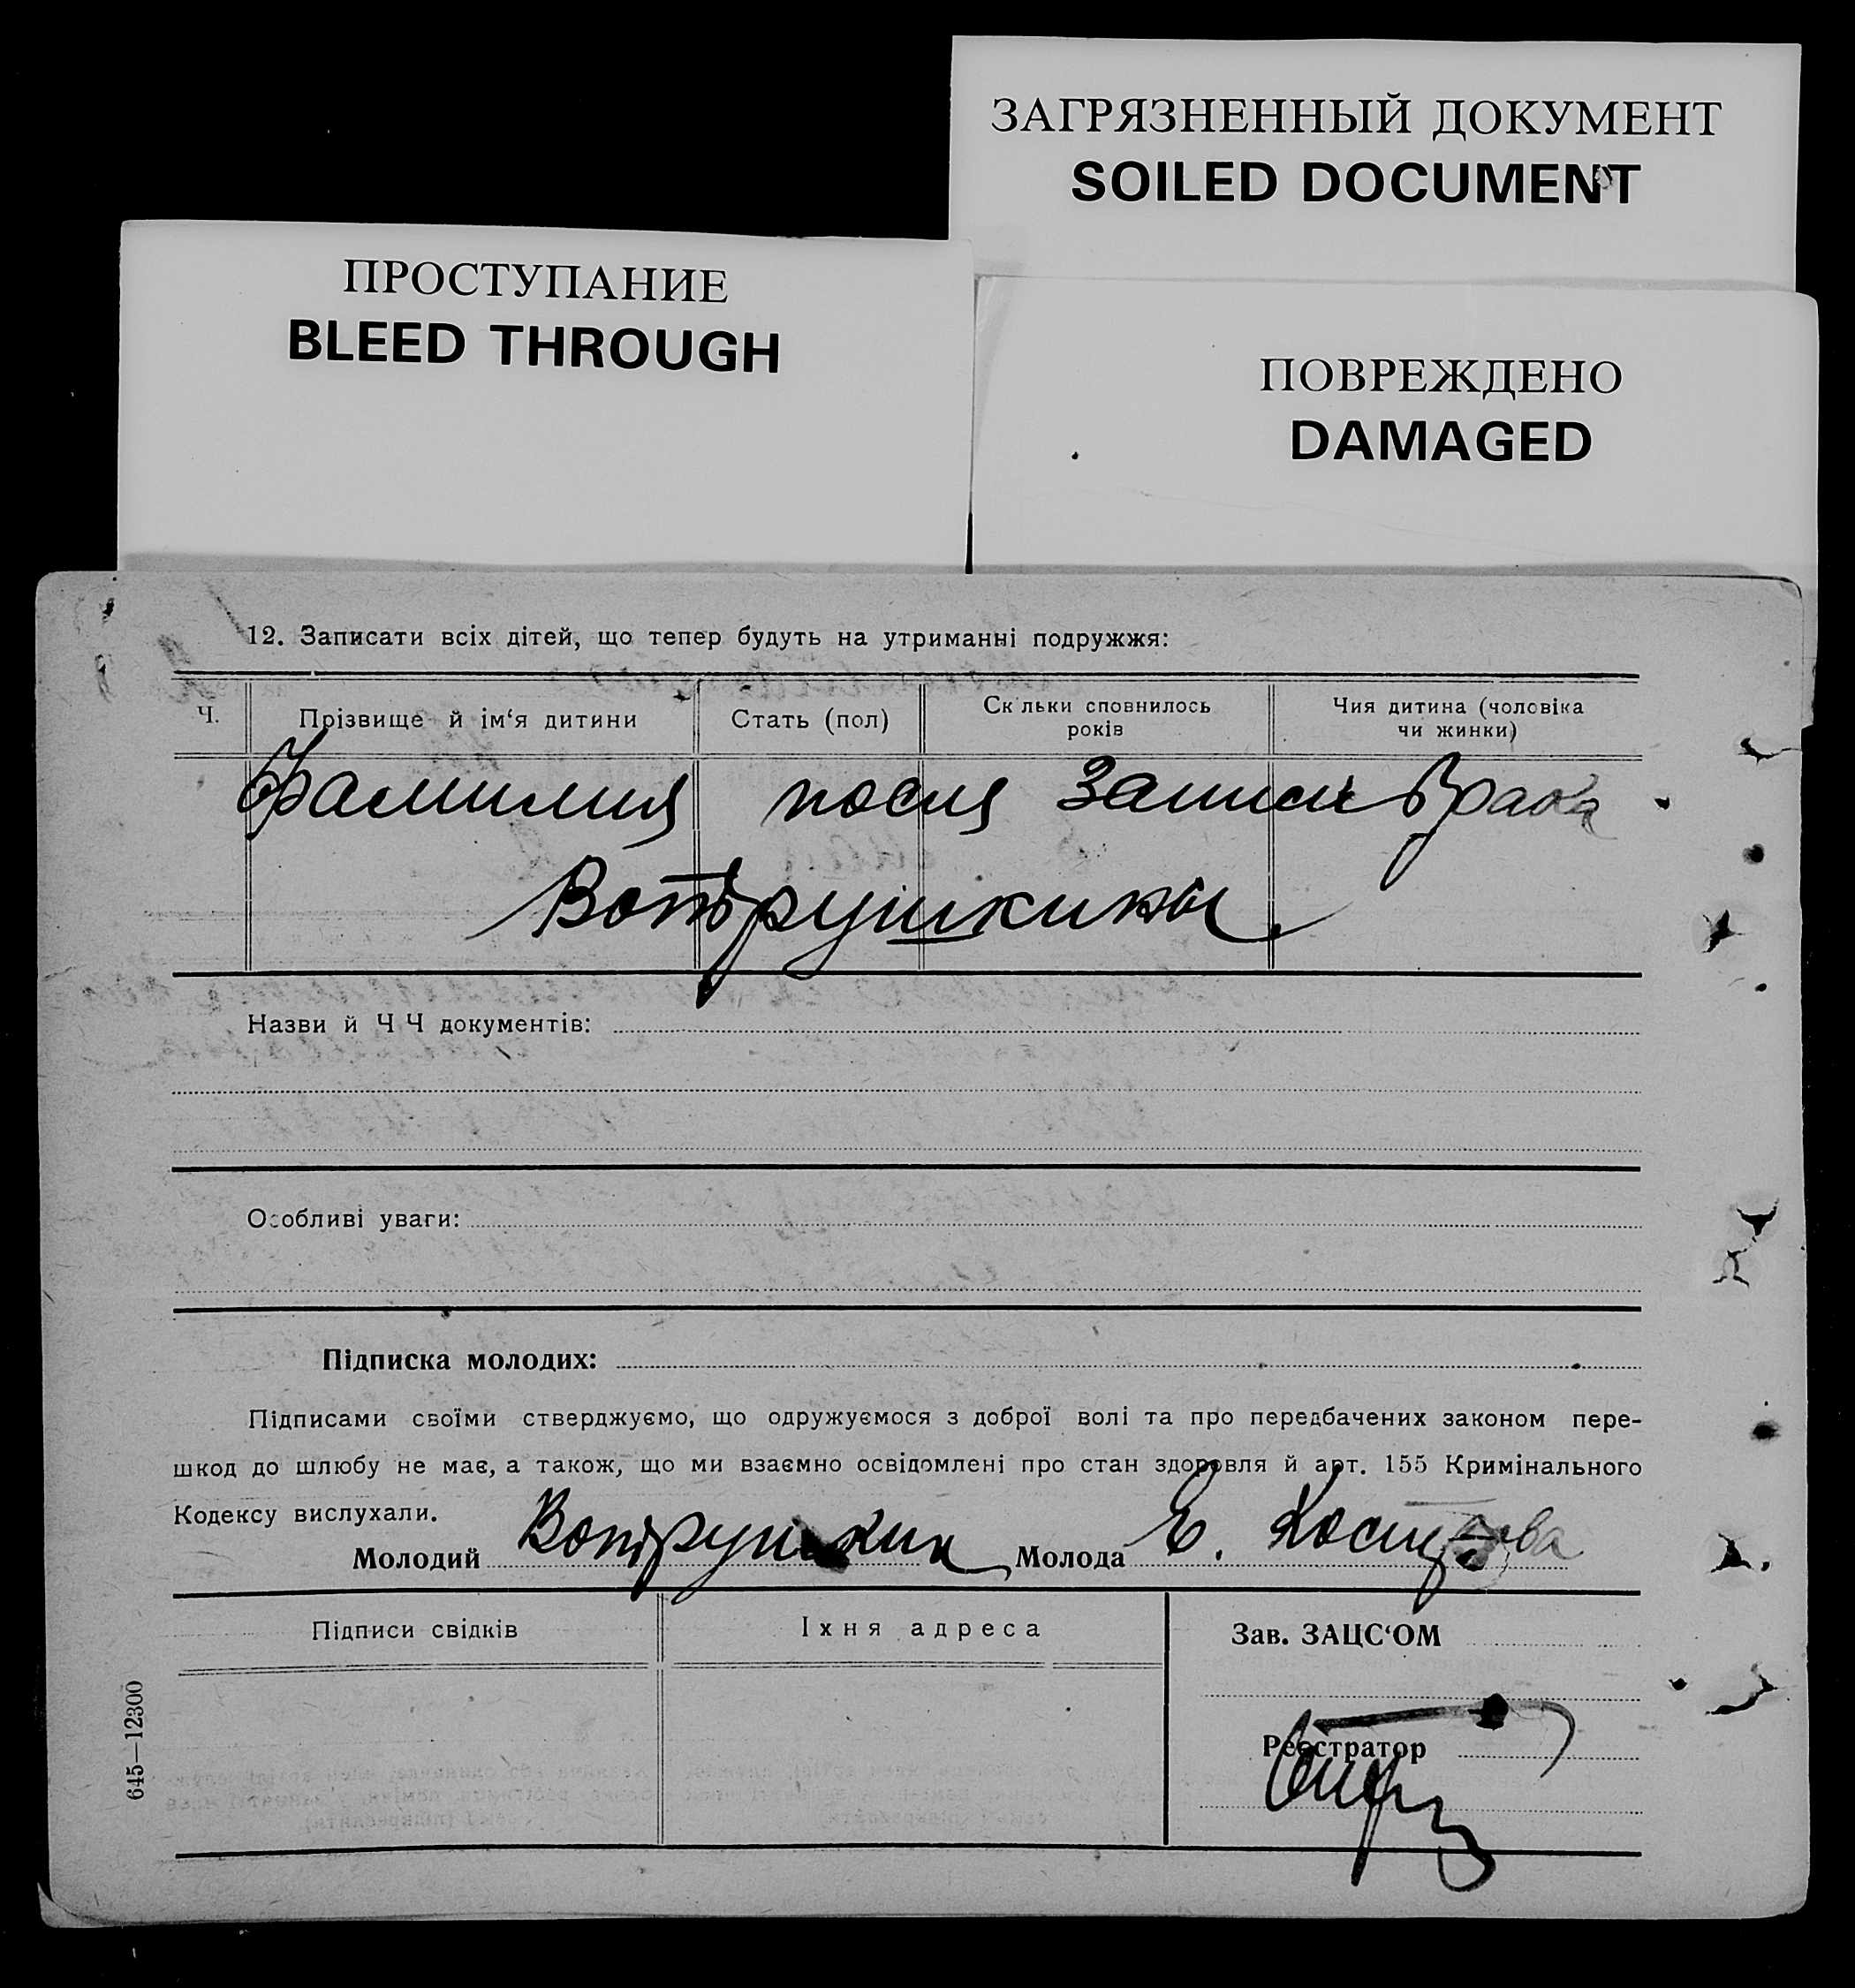 ЗАГРЯЗНЕННЫЙ ДОКУМЕНТ
SOILED DOCUMENT
ПРОСТУПАНИЕ
BLEED THROUGH
ПОВРЕЖДЕНО
DAMAGED
12. Записати всіх дітей, що тепер будуть на утриманні подружжя:
Ч.
Прізвище й ім‘я дитини
Стать (пол)
Скільки сповнилось
років
Чия дитина (чоловіка
чи жинки)
Фамилия после записи брака
Вотрушкины
Назви й Ч Ч документів:
Особливі уваги:
Підписка молодих:
Підписами своїми стверджуємо, що одружуємося з доброї волі та про передбачених законом пере-
шкод до шлюбу не має, а також, що ми взаємно освідомлені про стан здоровля й арт. 155 Кримінального
Кодексу вислухали.
Молодий Вотрушкин Молода Е.
Підписи свідків
Їхня адреса
Зав. ЗАЦС‘ОМ
Реєстратор
645—12300